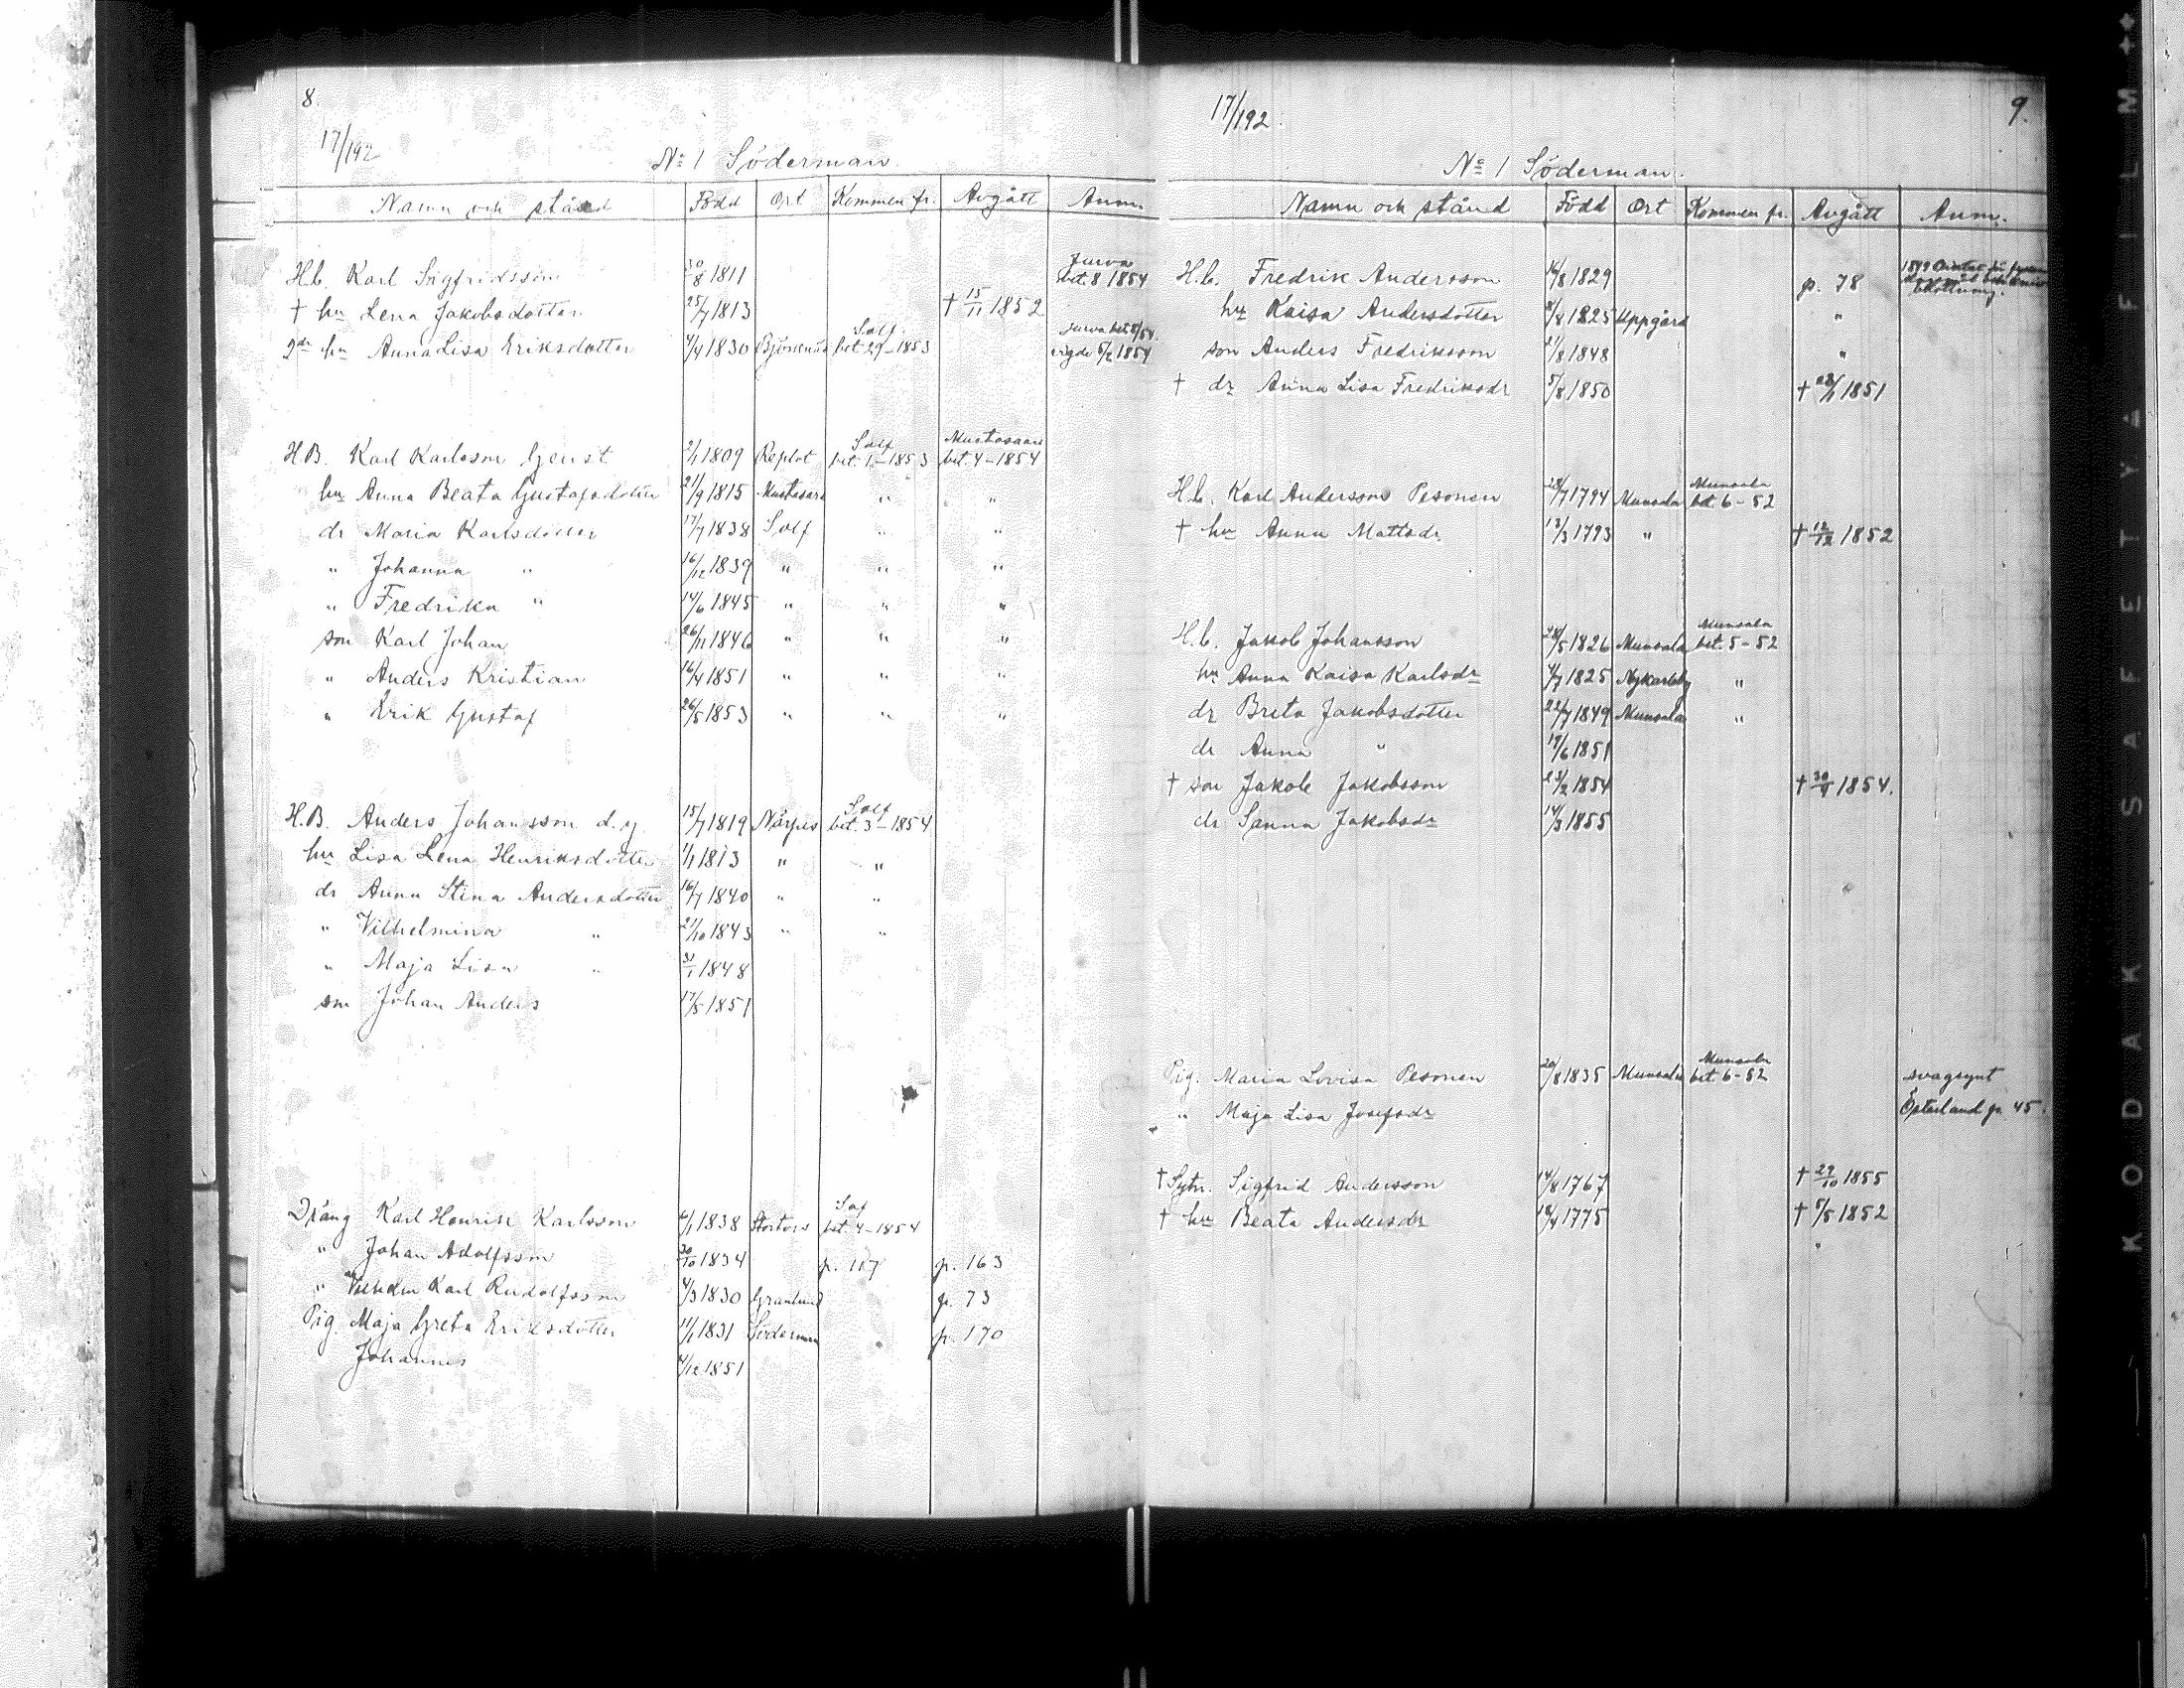 8
17/192
No 1 Söderman.
Namn och stånd Född Ort Kommen fr. Avgått Anm.
Jurva
H.b. Karl Sigfridsson 30/8 1811 bet. 8 1854
† hu Lena Jakobsdotter 25/7 1813 † 15/11 1852
Solf Jurva bet 8/54
2dr hu Anna Lisa Eriksdotter 4/4 1830 Björknäs bet 29-1853 vigde 5/2 1854
Solf Mustasaari
H.B. Karl Karlsson 2/1 1809 Replot bet. 1-1853 bet. 4-1854
hu Anna Beata Gustafsdotter 21/9 1815 Mustasari " "
dr Maria Karlsdotter 17/7 1838 Solf " "
" Johanna " 16/12 1839 " " "
" Fredrika " 14/6 1845 " " "
son Karl Johan 26/11 1846 " " "
" Anders Kristian 16/4 1851 " " "
" Erik Gustaf 26/5 1853 " " "
Solf
H.B. Anders Johansson d.y. 15/7 1819 Närpes bet. 3-1854
hu Lisa Lena Henriksdotter 1/1 1813 " "
dr Anna Stina Andersdotter 16/7 1840 " "
" Vilhelmina " 21/10 1843 " "
" Maja Lisa " 31/1 1848
son Johan Anders 17/5 1851
Solf
Dräng Karl Henrik Karlsson 6/1 1838 Stortors bet. 4-1854
" Johan Adolfsson 30/10 1834 p. 117 p. 163
" Karl Rudolfsson 4/3 1830 Granlund p. 73
Pig. Maja Greta Eriksdotter 11/1 1831 Söderman p. 170
Johannes 4/12 1851
17/192
9.
No 1 Söderman.
Namn och stånd Född Ort Kommen fr. Avgått Anm.
H.b. Fredrik Andersson 16/8 1829 p. 78 1849
hu Kaisa Andersdotter 8/8 1825 Uppgård "
son Anders Fredriksson 21/8 1848 "
† dr Anna Lisa Fredriksdr 5/8 1850 † 28/1 1851
Munsala
H.b. Karl Andersson Pesonen 28/7 1794 Munsala bet. 6-52
† hu Anna Mattsdr 13/3 1793 " † 12/12 1852
Munsala
H.b. Jakob Johansson 28/5 1826 Munsala bet. 5-52
hu Anna Kaisa Karlsdr 4/7 1825 Nykarleby "
dr Breta Jakobsdotter 22/7 1849 Munsala "
dr Anna " 19/6 1851
† son Jakob Jakobsson 23/2 1854 † 30/4 1854.
dr Sanna Jakobsdr 14/3 1855
Munsala
Pig. Maria Lovisa Pesonen 20/8 1835 Munsala bet. 6-52 svagsynt
" Maja Lisa Josefsdr Österland p. 45.
† Sytn. Sigfrid Andersson 14/8 1767 † 29/10 1855
† hu Beata Andersdr 18/4 1775 † 5/5 1852
KODAK SAFETY FILM